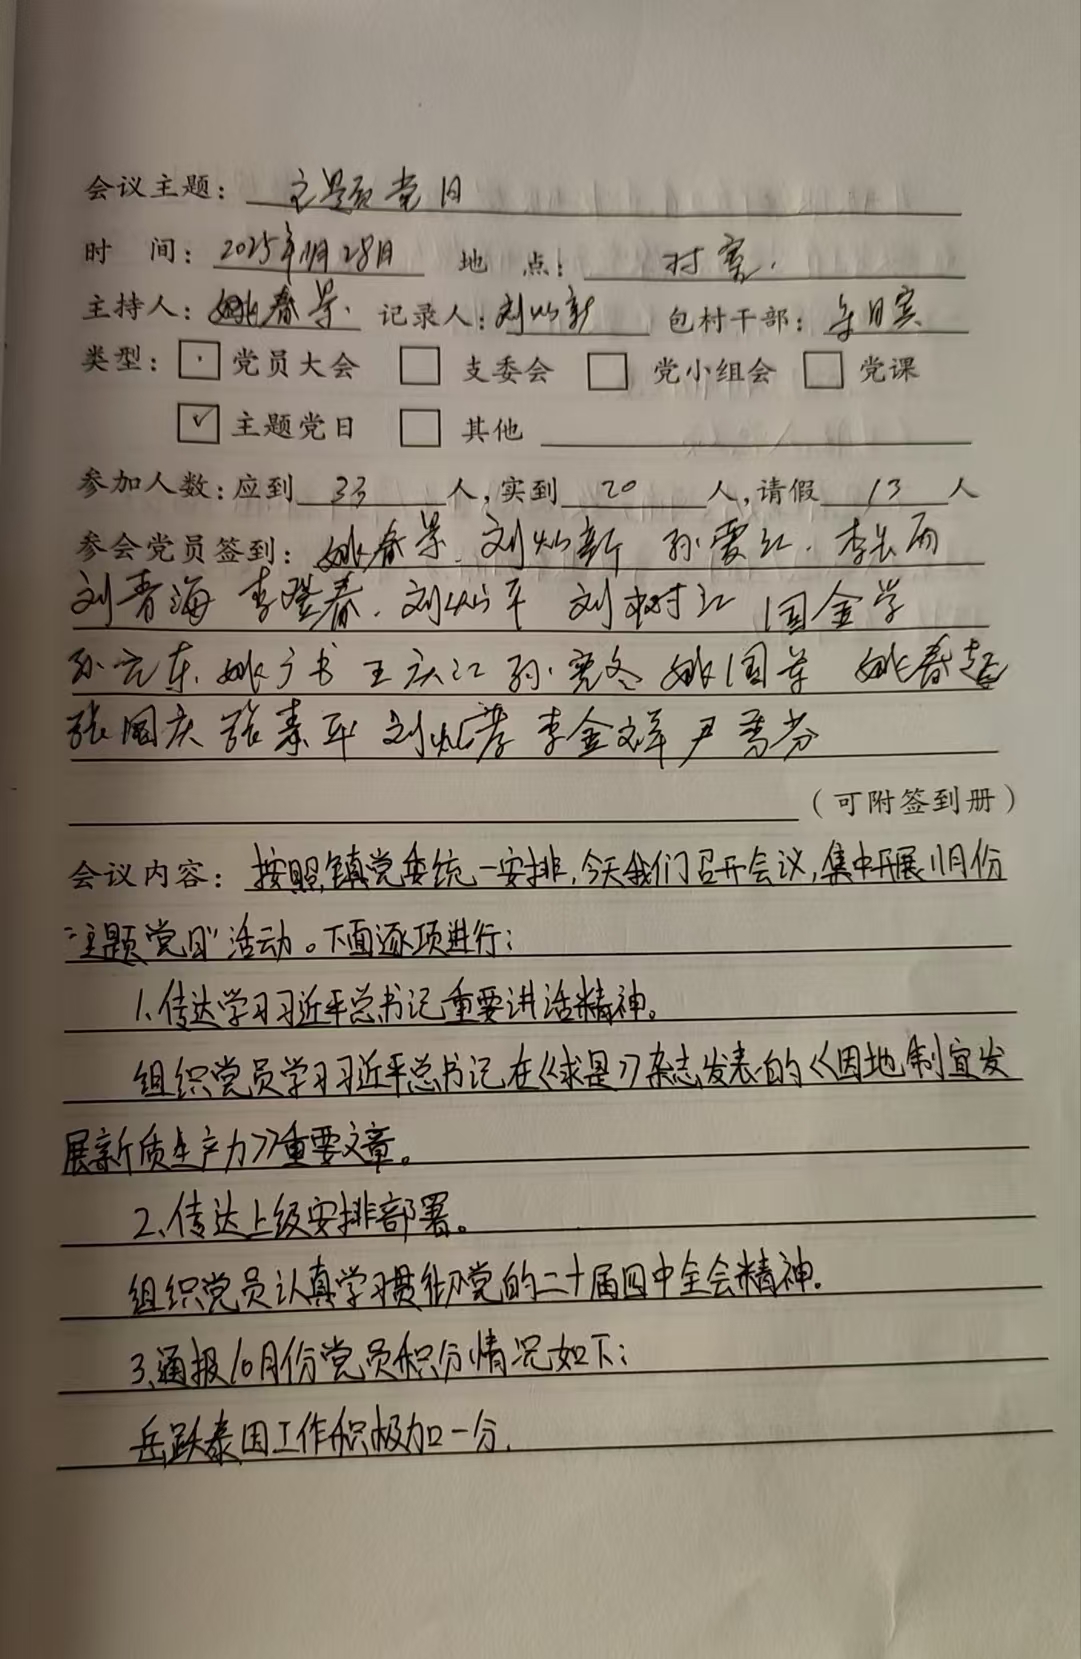 会议主题: 主题党日
时 间: 2025年11月28日 地 点: 村室.
主持人: 姚春景. 记录人: 刘灿新 包村干部:
类型: 党员大会 支委会 党小组会 党课
✓ 主题党日 其他
参加人数: 应到 33 人, 实到 20 人, 请假 13 人
参会党员签到: 姚春景. 刘灿新 孙雪红. 李长雨
刘青海 李登春. 刘灿平 刘树江 国金学
孙元东. 姚广书 王庆江 孙亮冬 姚国英 姚春超
张国庆 张素平 刘 李金祥 尹秀芬
(可附签到册)
会议内容: 按照镇党委统一安排,今天我们召开会议,集中开展11月份
“主题党日”活动。下面逐项进行:
1、传达学习习近平总书记重要讲话精神。
组织党员学习习近平总书记在《求是》杂志发表的《因地制宜发
展新质生产力》重要文章。
2、传达上级安排部署。
组织党员认真学习贯彻党的二十届四中全会精神.
3、通报10月份党员积分情况如下:
岳跃泰因工作积极加一分.